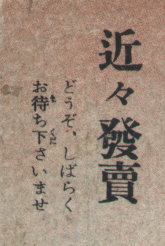 近々發賣
どうぞ、しばらく
お待ち下さいませ